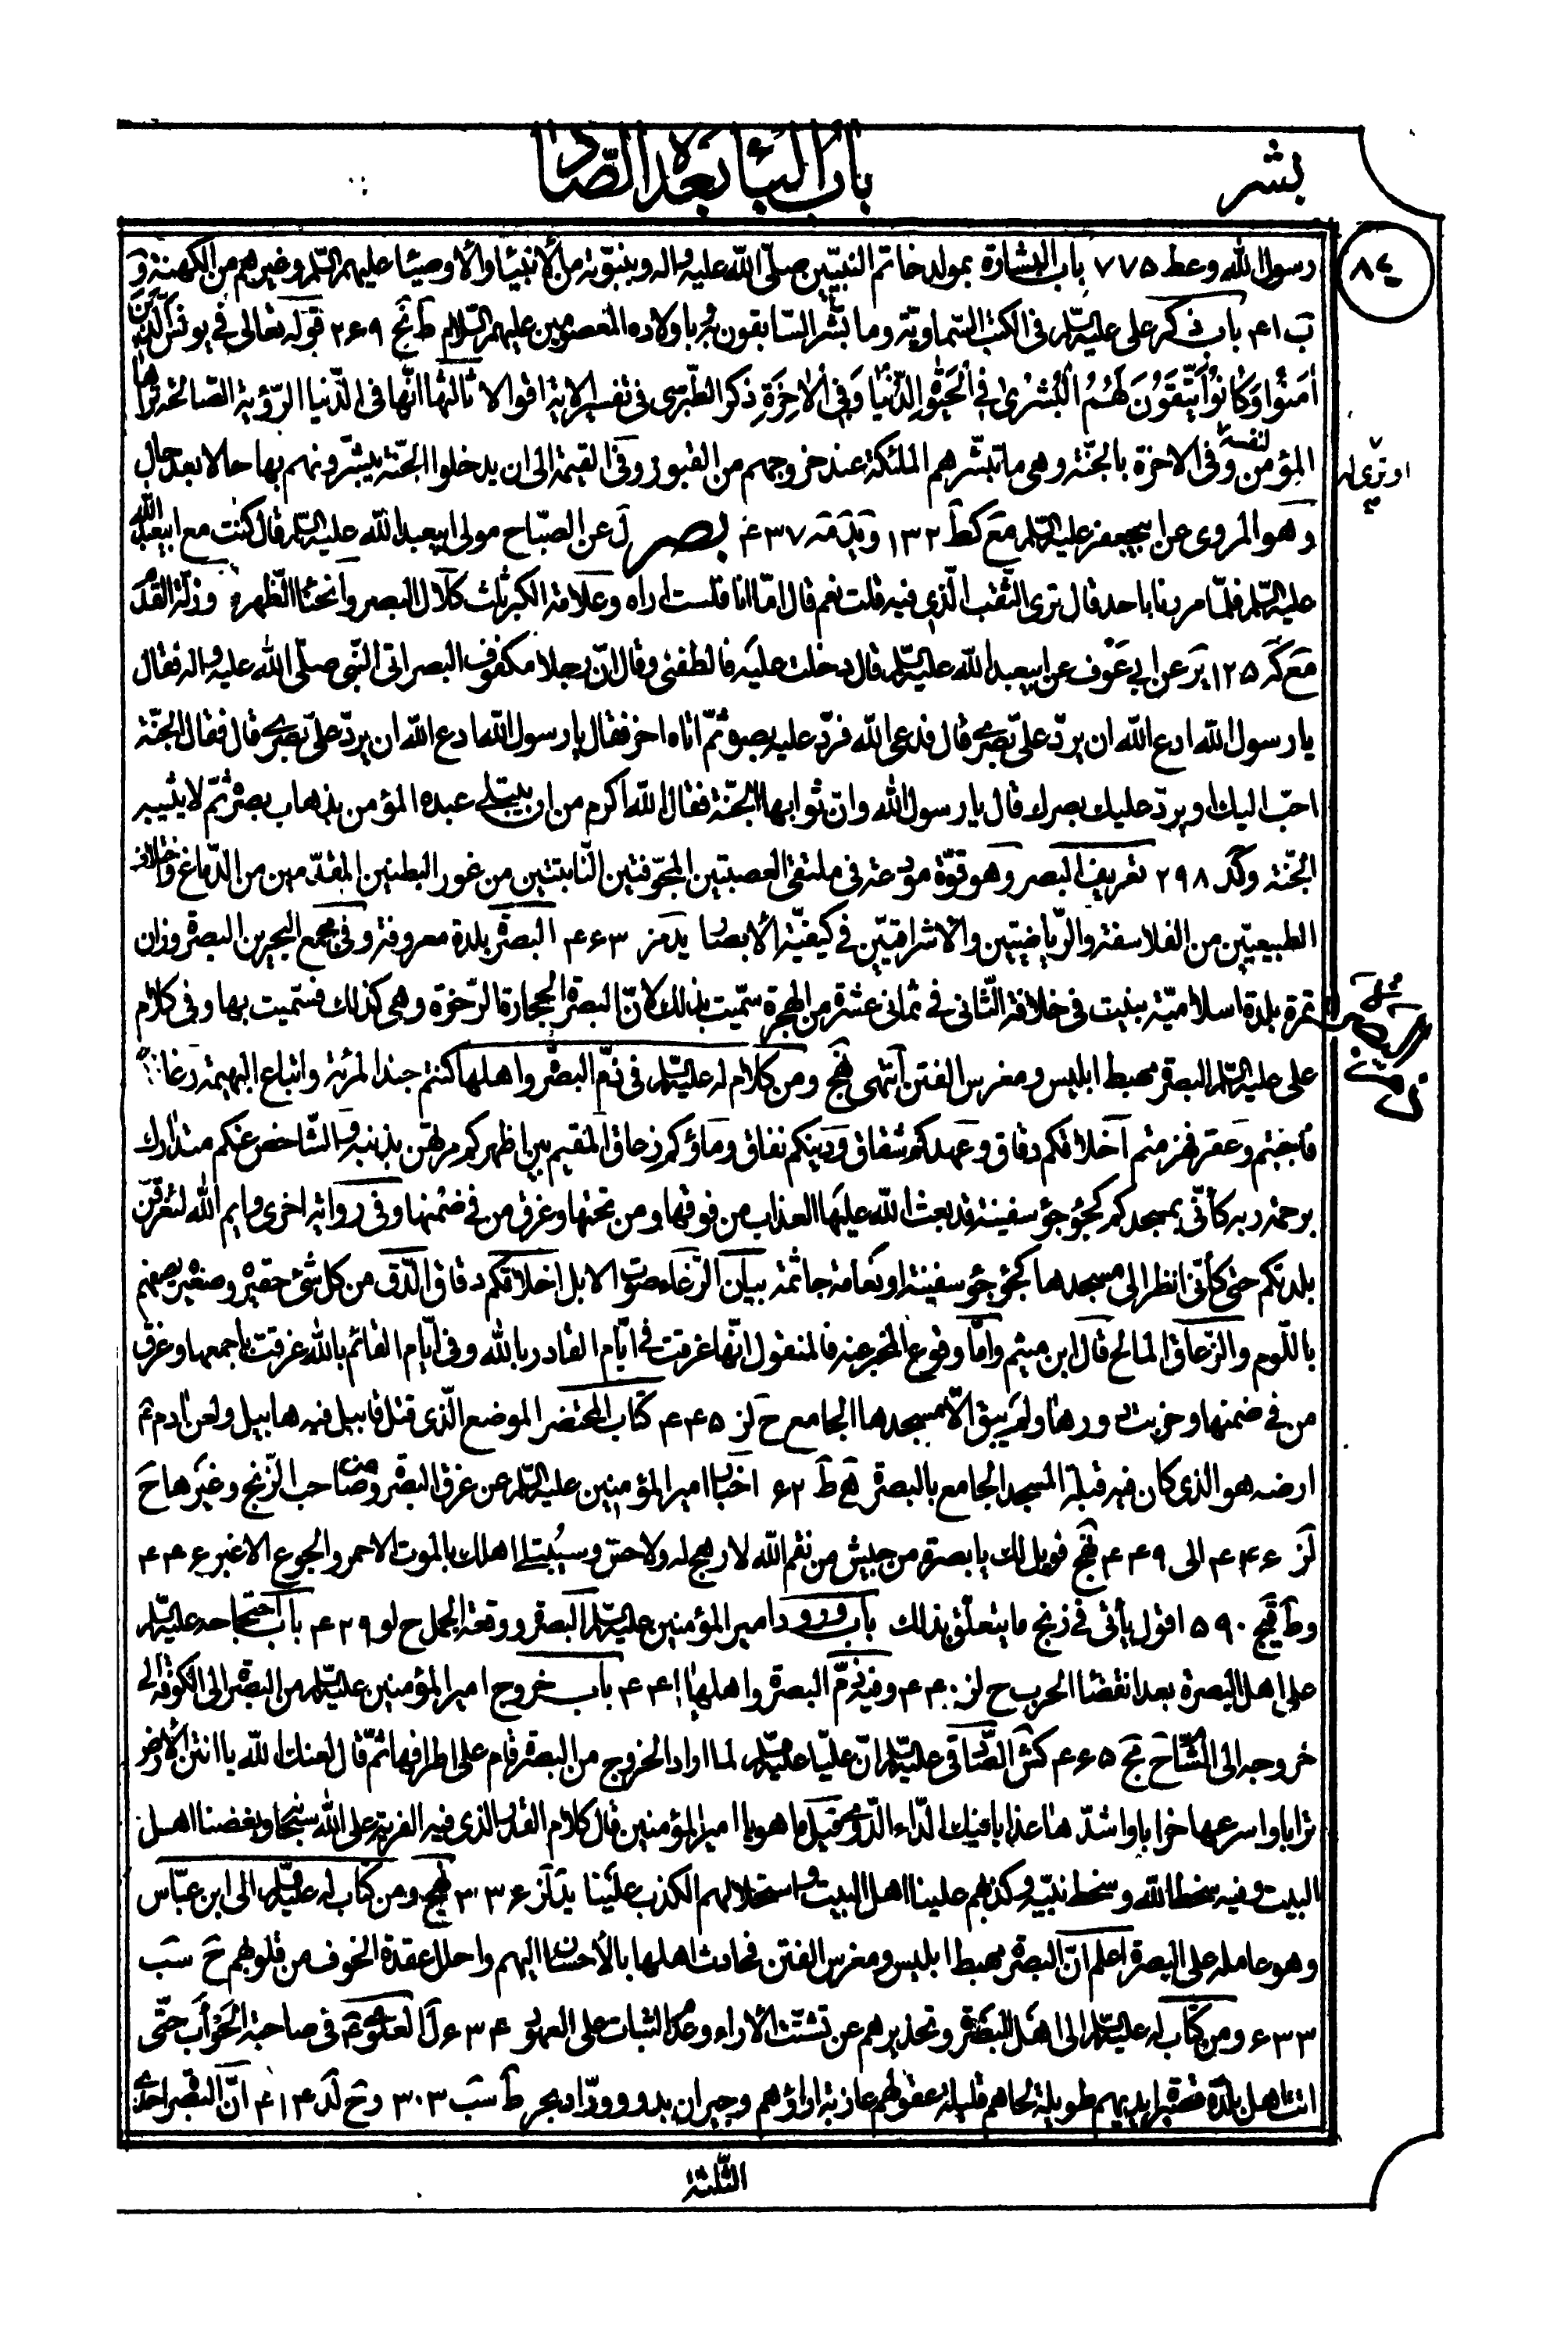 بشر
باب الباء بعده الصاد
٨٤
رسول الله وعط ٧٧٥ باب البشارة بمولد خاتم النبيّين صلّى الله عليه واله وبنبوّته من الأنبياء والأوصياء عليهم السّلم وغيرهم من الكهنة و
ب ٤١ باب ذكر على عليه السّلم فى الكتب السّماويّة وما بشّر السّابقون به وباولاده المعصومين عليهم السّلام ط نج ٢٦٩ قوله تعالى فى يونس الّذين
اٰمَنُوا وَكانُوا يَتَّقُونَ لَهُمُ الْبُشْرىٰ فِى الْحَيٰوةِ الدُّنْيٰا وَفِى الْاٰخِرَةِ ذكر الطّبرسى فى تفسير الاية اقوالا ثالثها انّها فى الدّنيا الرّؤية الصّالحة يراها
المؤمن لنفسه وفى الاخرة بالجنّة وهى ما تبشّرهم الملئكة عند خروجهم من القبور وفى القيمة الى ان يدخلوا الجنّة يبشّرونهم بها حالا بعد حال
او ترى له
وهو المروى عن ابيجعفر عليه السّلم مع كط ١٣٢ ٤٣٧ بصر ل عن الصبّاح مولى ابيعبد الله عليه السّلم قال كنت مع ابيعبد الله
عليه السّلم فلمّا مررنا باحد قال ترى الثّقب الّذى فيه قلت نعم قال امّا انا فلست اراه وعلامة الكبر ثلث كلال البصر وانحناء الظّهر ورقّة القدم
مع كه ١٢٥ ير عن ابى عوف عن ابيعبد الله عليه السّلم قال دخلت عليه فالطفنى وقال انّ رجلا مكفوف البصر اتى النّبى صلّى الله عليه واله فقال
يا رسول الله ادع الله ان يردّ علىّ بصرى قال فدعى الله فردّ عليه بصره ثمّ اتاه اخر فقال يا رسول الله ادع الله ان يردّ علىّ بصرى قال فقال الجنّة
احبّ اليك او يردّ عليك بصرك قال يا رسول الله وانّ ثوابها الجنّة فقال الله اكرم من ان يبتلى عبده المؤمن بذهاب بصره ثمّ لا يثيبه
الجنّة وكد ٢٩٨ تعريف البصر وهو قوّة مودعة فى ملتقى العصبتين المجوّفتين النّابتتين من غور البطنين المقدّمين من الدّماغ وخلاف
الطبيعيّين من الفلاسفة والرّياضيّين والأشراقيّين فى كيفيّة الأبصار يد مز ٤٦٣ البصرة بلدة معروفة وفى مجمع البحرين البصرة وزان
تمرة بلدة اسلاميّة بنيت فى خلافة الثّانى فى ثمانى عشرة من الهجرة سمّيت بذلك لانّ البصرة الحجارة الرّخوة وهى كذلك فسمّيت بها وفى كلام
على عليه السّلم البصرة مهبط ابليس ومغرس الفتن انتهى نهج ومن كلام له عليه السّلم فى ذمّ البصرة واهلها كنتم جند المرئة واتباع البهيمة رغا
فاجبتم وعقر فهزمتم اخلاقكم دقاق وعهدكم شقاق ودينكم نفاق وماؤكم زعاق المقيم بين اظهركم مرتهن بذنبه والشّاخص عنكم متدارك
برحمة ربه كأنّى بمسجدكم كجؤجؤ سفينة قد بعث الله عليها العذاب من فوقها ومن تحتها وغرق من فى ضمنها وفى رواية اخرى وايم الله لتغرقنّ
بلدتكم حتى كأنّى انظر الى مسجدها كجؤجؤ سفينة او نعامة جاثمة بيان الرّغاء صوت الابل اخلاقكم دقاق الدّق من كل شئ حقيره وصغيره يصفهم
باللّوم والزّعاق المالح قال ابن ميثم وامّا وقوع المخبر عنه فالمنقول انّها غرقت فى ايّام القادر بالله وفى ايّام القائم بالله غرقت باجمعها وغرق
من فى ضمنها وخربت دورها ولم يبق الّا مسجدها الجامع ح لز ٤٤٥ كتاب المحتضر الموضع الّذى قتل قابيل فيه هابيل ولعن ادم ع
ارضه هو الذى كان فيه قبلة المسجد الجامع بالبصرة ه ط ٦٢ اخبار امير المؤمنين عليه السّلم عن غرق البصرة وصاحب الزّنج وغيرها ح
لز ٤٤٦ الى ٤٤٩ نهج فويل لك يا بصرة من جيش من نقم الله لا رهج له ولا حسّ وسيبتلى اهلك بالموت الاحمر والجوع الاغبر ٤٤٦
وط قيج ٥٩٠ اقول يأتى فى زنج ما يتعلّق بذلك باب ورود امير المؤمنين عليه السّلم البصرة ووقعة الجمل ح لو ٤٢٩ باب احتجاجه عليه السّلم
على اهل البصرة بعد انقضاء الحرب ح لز ٤٤٠ وفيه ذمّ البصرة واهلها ٤٤١ باب خروج امير المؤمنين عليه السّلم من البصرة الى الكوفة الى
خروجه الى الشّام ح مج ٤٦٥ كش الصّادق عليه السّلم انّ عليّا عليه السّلم لما اراد الخروج من البصرة قام على اطرافها ثمّ قال لعنك الله يا انتن الأرض
ترابا واسرعها خرابا واشدّها عذابا فيك الدّاء الدّوى قيل ما هو يا امير المؤمنين قال كلام القدر الذى فيه الفرية على الله سبحانه وبغضنا اهل
البيت وفيه سخط الله وسخط نبيّه وكذبهم علينا اهل البيت واستحلالهم الكذب علينا يد لز ٣٣٦ نهج ومن كتاب له عليه السّلم الى ابن عبّاس
وهو عامله على البصرة اعلم انّ البصرة مهبط ابليس ومغرس الفتن فحادث اهلها بالأحسان اليهم واحلل عقدة الخوف من قلوبهم ح سب
٦٣٣ ومن كتاب له عليه السّلم الى اهل البصرة وتحذيرهم عن تشتّت الأراء وعدم الثبات على العهود ٦٣٤ ل العلوى ع فى صاحبة الحوأب حتّى
اتت اهل بلدة قصيرة ايديهم طويلة لحاهم قليلة عقولهم عازبة اراؤهم وجيران بدو وورّاد بحر ط سب ٣٠٣ وح لد ٤١٤ انّ البصرة احدى
الثّلثة